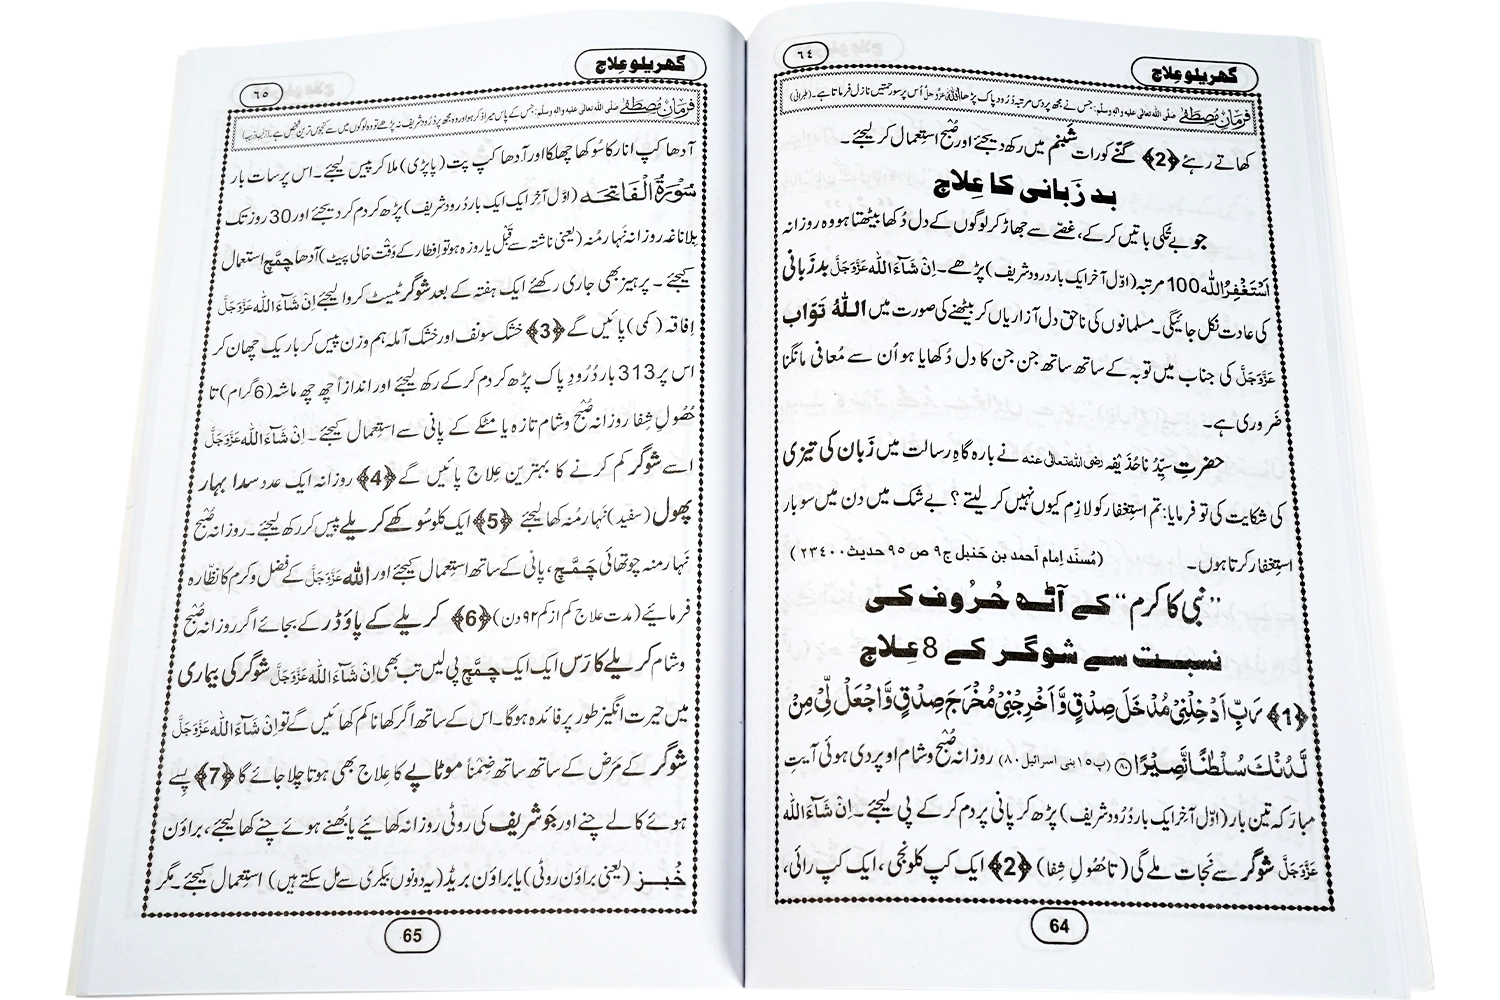 گھریلو عِلاج
٦٤
فرمانِ مُصطَفٰے صلی اللہ تعالٰی علیہ واٰلہٖ وسلم: جس نے مجھ پر دس مرتبہ دُرُودِ پاک پڑھا اللہ عَزَّوَجَلَّ اُس پر سو رحمتیں نازل فرماتا ہے۔ (طبرانی)
کھاتے رہئے ﴿2﴾ گنّے کو رات شبنم میں رکھ دیجئے اور صُبح استعمال کر لیجئے۔
بد زَبانی کا عِلاج
جو بے تُکی باتیں کر کے، غصّے سے جھاڑ کر لوگوں کے دل دُکھا بیٹھتا ہو وہ روزانہ
اَسْتَغْفِرُ اللّٰه 100 مرتبہ (اوّل آخر ایک بار درود شریف) پڑھے۔ اِنْ شَآءَ اللّٰه عَزَّوَجَلَّ بد زَبانی
کی عادت نکل جائیگی۔ مسلمانوں کی ناحق دل آزاریاں کر بیٹھنے کی صورت میں اللّٰهُ تَوّاب
عَزَّوَجَلَّ کی جناب میں توبہ کے ساتھ ساتھ جن جن کا دل دُکھایا ہو اُن سے مُعافی مانگنا
ضَروری ہے۔
حضرتِ سیِّدُنا حُذَیفہ رضی اللہ تعالٰی عنہ نے بارہ گاہِ رسالت میں زَبان کی تیزی
کی شکایت کی تو فرمایا: تم استِغفار کو لازِم کیوں نہیں کر لیتے؟ بے شک میں دن میں سو بار
استِغفار کرتا ہوں۔ (مُسنَد اِمام اَحمد بن حَنبل ج۹ ص ۹۵ حدیث ۲۳۴۰۰)
”نبی کا کرم“ کے آٹھ حُرُوف کی
نسبت سے شوگر کے 8 عِلاج
﴿1﴾ رَبِّ اَدْخِلْنِیْ مُدْخَلَ صِدْقٍ وَّ اَخْرِجْنِیْ مُخْرَجَ صِدْقٍ وَّ اجْعَلْ لِّیْ مِنْ
لَّدُنْكَ سُلْطٰنًا نَّصِیْرًا ﴿۸۰﴾ (پ۱۵ بنی اسرائیل ۸۰) روزانہ صُبح و شام اوپر دی ہوئی آیتِ
مبارَکہ تین بار (اوّل آخر ایک بار دُرُود شریف) پڑھ کر پانی پر دم کر کے پی لیجئے۔ اِنْ شَآءَ اللّٰه
عَزَّوَجَلَّ شوگر سے نَجات ملے گی (تا حُصولِ شِفا) ﴿2﴾ ایک کپ کلونجی، ایک کپ رائی،
64
گھریلو عِلاج
٦٥
فرمانِ مُصطَفٰے صلی اللہ تعالٰی علیہ واٰلہٖ وسلم: جس کے پاس میرا ذکر ہوا ور وہ مجھ پر دُرُود شریف نہ پڑھے تو وہ لوگوں میں سے کنجوس ترین شخص ہے۔
آدھا کپ انار کا سُوکھا چھلکا اور آدھا کپ پت (پاپڑی) ملا کر پیس لیجئے۔ اس پر سات بار
سُوْرَۃُ الْفَاتِحَہ (اوّل آخر ایک ایک بار دُرُود شریف) پڑھ کر دم کر دیجئے اور 30 روز تک
بِلا ناغہ روزانہ نَہار مُنہ (یعنی ناشتہ سے قَبْل یا روزہ ہو تو افطار کے وَقْت خالی پیٹ) آدھا چمّچ استعمال
کیجئے۔ پرہیز بھی جاری رکھئے ایک ہفتہ کے بعد شوگر ٹیسٹ کروا لیجئے اِنْ شَآءَ اللّٰه عَزَّوَجَلَّ
اِفاقہ (کمی) پائیں گے ﴿3﴾ خشک سونف اور خشک آملہ ہم وزن پیس کر باریک چھان کر
اس پر 313 بار دُرُودِ پاک پڑھ کر دم کر کے رکھ لیجئے اور اندازاً چھ چھ ماشہ (6 گرام) تا
حُصُولِ شِفا روزانہ صُبح و شام تازہ یا مٹکے کے پانی سے استِعمال کیجئے۔ اِنْ شَآءَ اللّٰه عَزَّوَجَلَّ
اسے شوگر کم کرنے کا بہترین عِلاج پائیں گے ﴿4﴾ روزانہ ایک عدد سدا بہار
پھول (سفید) نَہار مُنہ کھا لیجئے ﴿5﴾ ایک کلو سُوکھے کریلے پیس کر رکھ لیجئے۔ روزانہ صُبح
نَہار منہ چوتھائی چمّچ، پانی کے ساتھ استِعمال کیجئے اور اللّٰه عَزَّوَجَلَّ کے فضل و کرم کا نظّارہ
فرمائیے (مدت علاج کم از کم ۹۲ دن) ﴿6﴾ کریلے کے پاؤڈر کے بجائے اگر روزانہ صُبح
و شام کریلے کا رَس ایک ایک چمّچ پی لیں تب بھی اِنْ شَآءَ اللّٰه عَزَّوَجَلَّ شوگر کی بیماری
میں حیرت انگیز طور پر فائدہ ہوگا۔ اس کے ساتھ اگر کھانا کم کھائیں گے تو اِنْ شَآءَ اللّٰه عَزَّوَجَلَّ
شوگر کے مَرَض کے ساتھ ساتھ ضِمْناً موٹاپے کا عِلاج بھی ہوتا چلا جائے گا ﴿7﴾ پِسے
ہوئے کالے چنے اور جَو شریف کی روٹی روزانہ کھائیے یا بُھنے ہوئے چنے کھا لیجئے، براؤن
خُبز (یعنی براؤن روٹی) یا براؤن بریڈ (یہ دونوں بیکری سے مل سکتے ہیں) استِعمال کیجئے۔ مگر
65